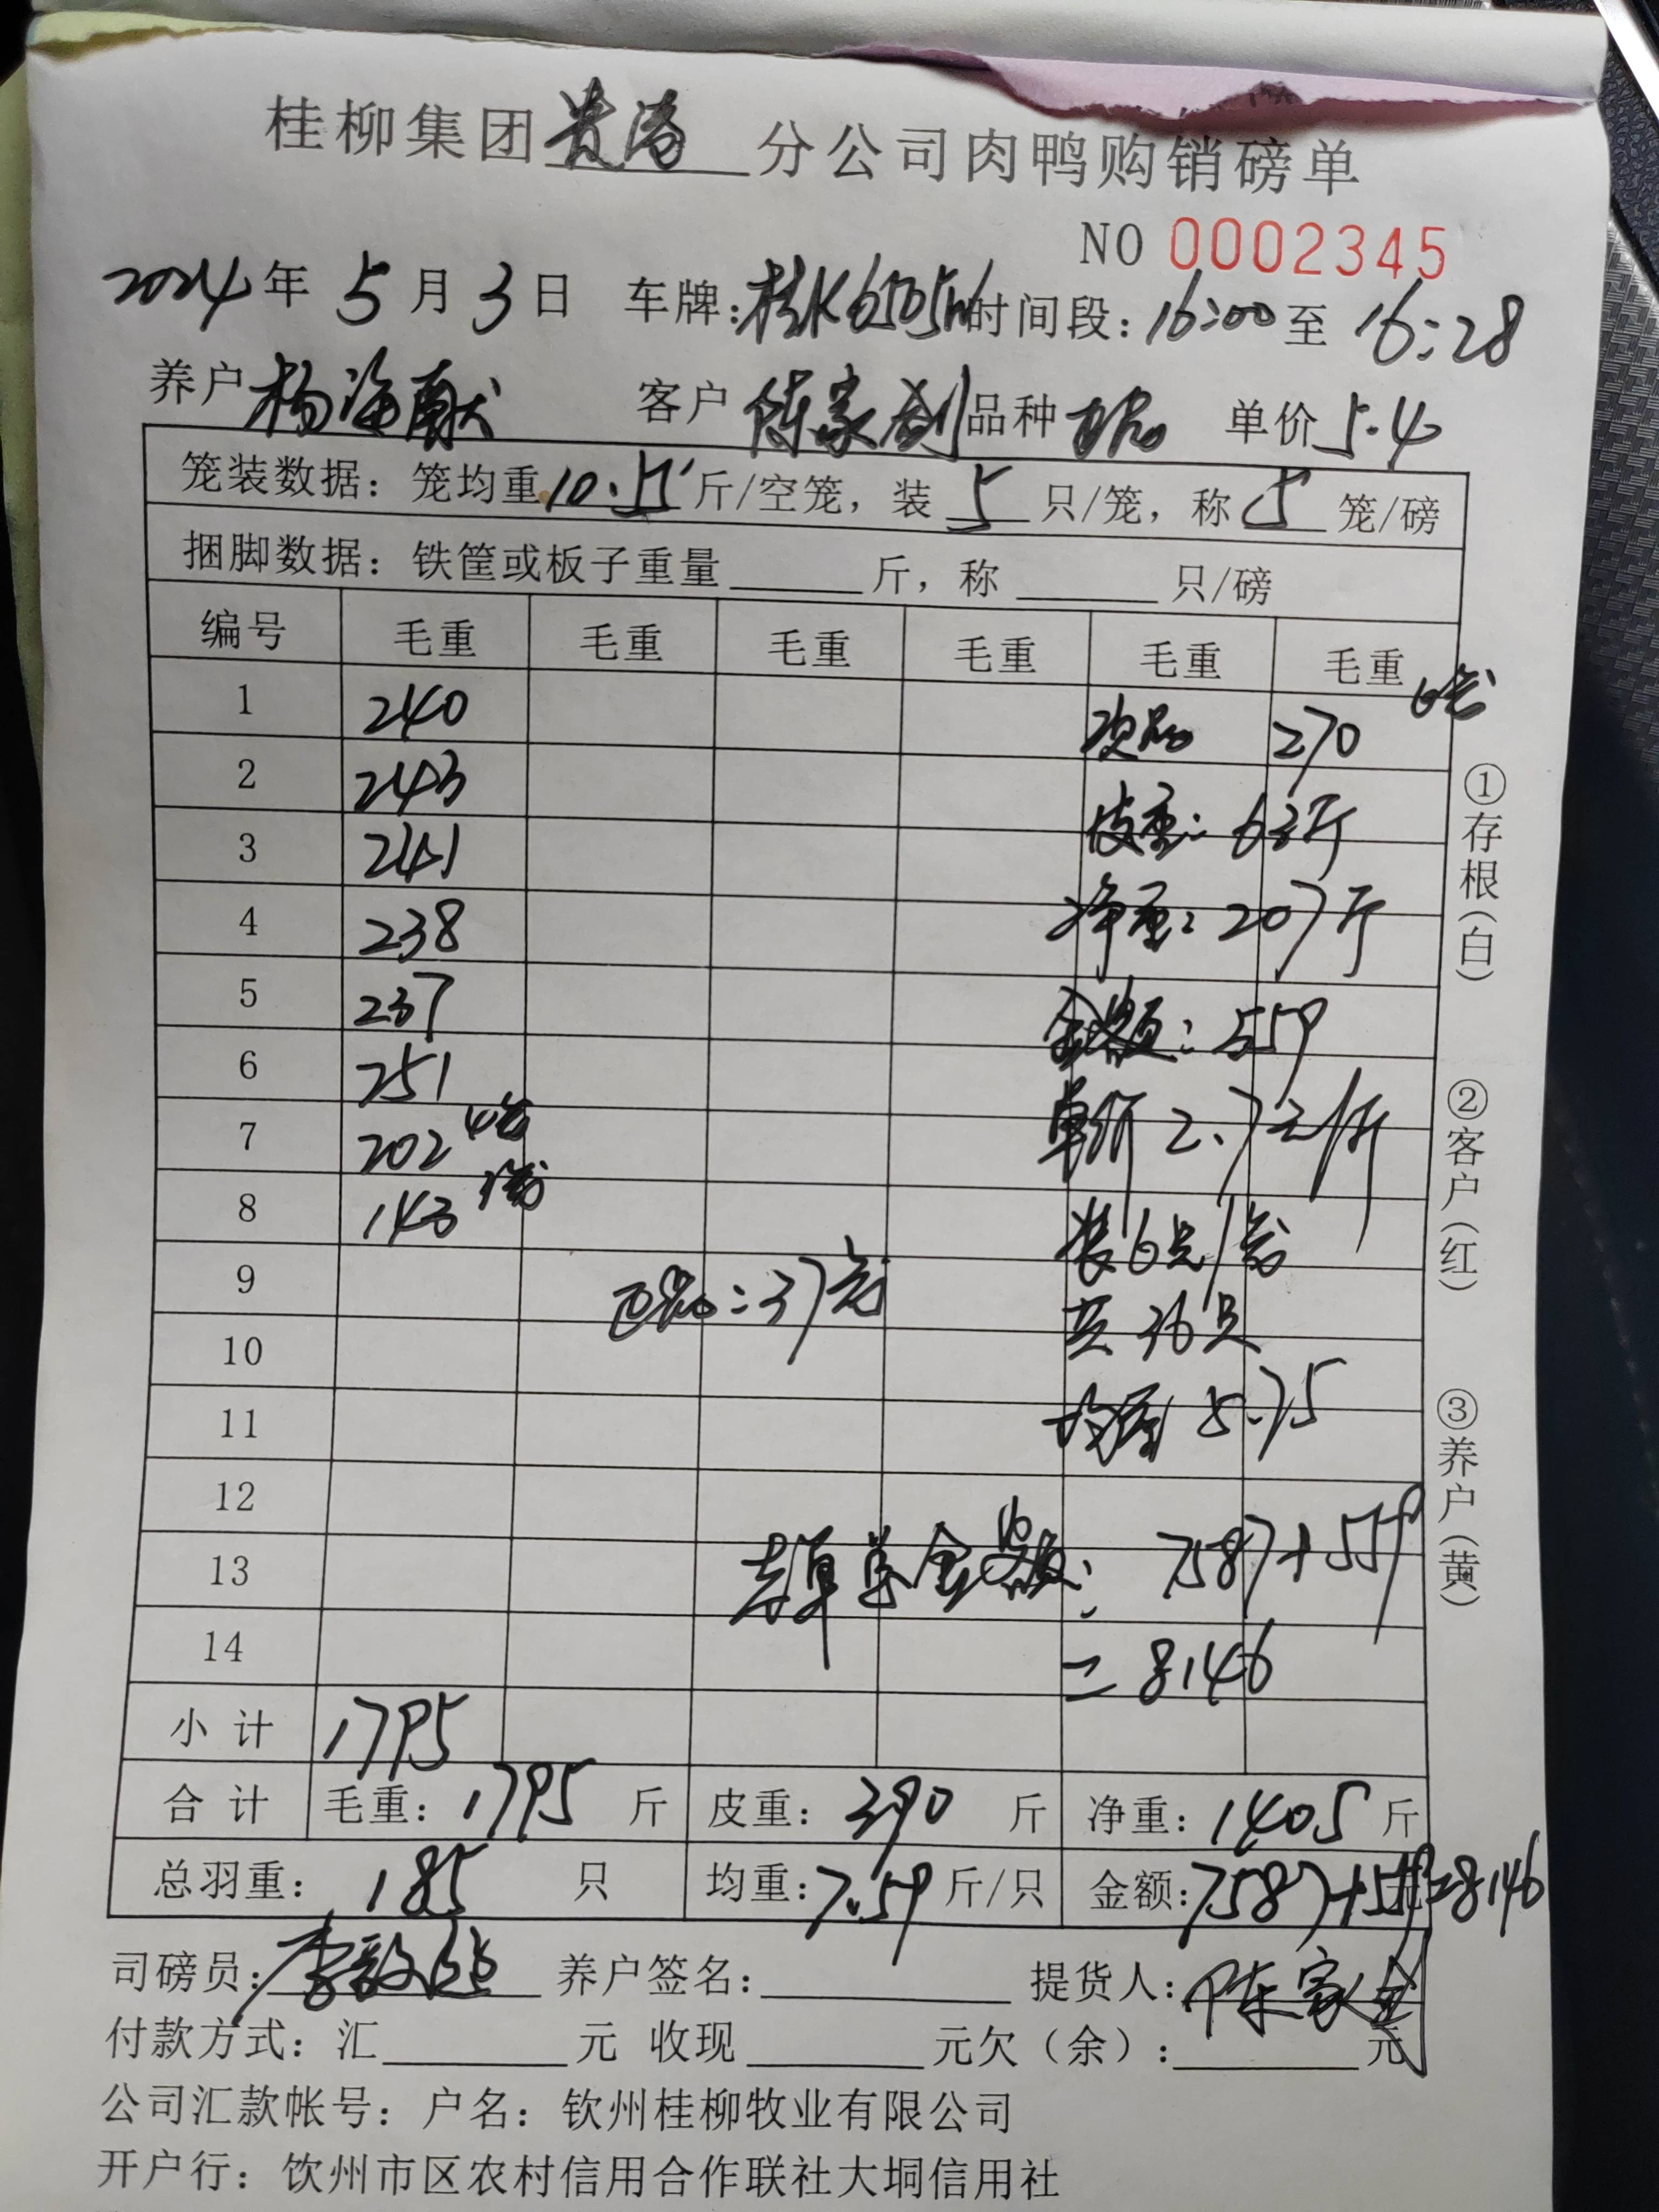 桂柳集团贵港分公司肉鸭购销磅单
NO 0002345
2024年5月3日 车牌:桂K6505 时间段:16:00至16:28
养户杨海献 客户陈家 品种 单价5.4
笼装数据:笼均重10.5斤/空笼,装5只/笼,称5笼/磅
捆脚数据:铁筐或板子重量 斤,称 只/磅
编号 毛重 毛重 毛重 毛重 毛重 毛重 6笼
1 240 次品 270
2 243 皮重:63斤
3 241 净重:207斤
4 238
5 237 金额:559
6 251 单价2.7元/斤
7 202 4笼
8 143 3笼 装6只/笼
9 :37笼 共36只
10
11 均重5.75
12
13 总金额:7587+559
14 =8146
小计 1795
合计 毛重:1795斤 皮重:390斤 净重:1405斤
总羽重:185只 均重:7.59斤/只 金额:7587+559=8146元
司磅员:李 养户签名: 提货人:陈家
付款方式:汇 元 收现 元欠(余): 元
公司汇款帐号:户名:钦州桂柳牧业有限公司
开户行:饮州市区农村信用合作联社大垌信用社
①存根(白)
②客户(红)
③养户(黄)